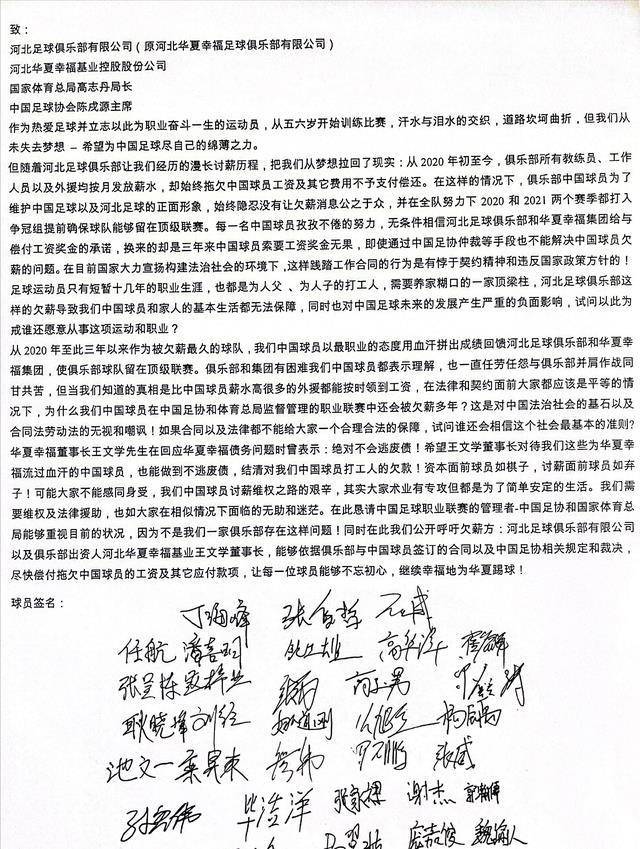 致：
河北足球俱乐部有限公司（原河北华夏幸福足球俱乐部有限公司）
河北华夏幸福基业控股股份公司
国家体育总局高志丹局长
中国足球协会陈戌源主席
作为热爱足球并立志以此为职业奋斗一生的运动员，从五六岁开始训练比赛，汗水与泪水的交织，道路坎坷曲折，但我们从
未失去梦想 – 希望为中国足球尽自己的绵薄之力。
但随着河北足球俱乐部让我们经历的漫长讨薪历程，把我们从梦想拉回了现实：从 2020 年初至今，俱乐部所有教练员、工作
人员以及外援均按月发放薪水，却始终拖欠中国球员工资及其它费用不予支付偿还。在这样的情况下，俱乐部中国球员为了
维护中国足球以及河北足球的正面形象，始终隐忍没有让欠薪消息公之于众，并在全队努力下 2020 和 2021 两个赛季都打入
争冠组提前确保球队能够留在顶级联赛。每一名中国球员孜孜不倦的努力，无条件相信河北足球俱乐部和华夏幸福集团给与
偿付工资奖金的承诺，换来的却是三年来中国球员索要工资奖金无果，即使通过中国足协仲裁等手段也不能解决中国球员欠
薪的问题。在目前国家大力宣扬构建法治社会的环境下,这样践踏工作合同的行为是有悖于契约精神和违反国家政策方针的！
足球运动员只有短暂十几年的职业生涯，也都是为人父 、为人子的打工人，需要养家糊口的一家顶梁柱，河北足球俱乐部这
样的欠薪导致我们中国球员和家人的基本生活都无法保障，同时也对中国足球未来的发展产生严重的负面影响，试问以此为
戒谁还愿意从事这项运动和职业？
从 2020 年至此三年以来作为被欠薪最久的球队，我们中国球员以最职业的态度用血汗拼出成绩回馈河北足球俱乐部和华夏幸
福集团，使俱乐部球队留在顶级联赛。俱乐部和集团有困难我们中国球员都表示理解，也一直任劳任怨与俱乐部并肩作战同
甘共苦，但当我们知道的真相是比中国球员薪水高很多的外援都能按时领到工资，在法律和契约面前大家都应该是平等的情
况下，为什么我们中国球员在中国足协和体育总局监督管理的职业联赛中还会被欠薪多年？这是对中国法治社会的基石以及
合同法劳动法的无视和嘲讽！如果合同以及法律都不能给大家一个合理合法的保障，试问谁还会相信这个社会最基本的准则?
华夏幸福董事长王文学先生在回应华夏幸福债务问题时曾表示：绝对不会逃废债！希望王文学董事长对待我们这些为华夏幸
福流过血汗的中国球员，也能做到不逃废债，结清对我们中国球员打工人的欠款！资本面前球员如棋子，讨薪面前球员如弃
子！可能大家不能感同身受，我们中国球员讨薪维权之路的艰辛，其实大家术业有专攻但都是为了简单安定的生活。我们需
要维权及法律援助，也如大家在相似情况下面临的无助和迷茫。在此恳请中国足球职业联赛的管理者-中国足协和国家体育总
局能够重视目前的状况，因为不是我们一家俱乐部存在这样问题！同时在此我们公开呼吁欠薪方：河北足球俱乐部有限公司
以及俱乐部出资人河北华夏幸福基业王文学董事长，能够依据俱乐部与中国球员签订的合同以及中国足协相关规定和裁决，
尽快偿付拖欠中国球员的工资及其它应付款项，让每一位球员能够不忘初心，继续幸福地为华夏踢球！
球员签名：
丁海峰
任航 潘喜明 高华泽
张呈栋
池文一 张威
毕津洋 张家棋 谢杰
庞嘉俊